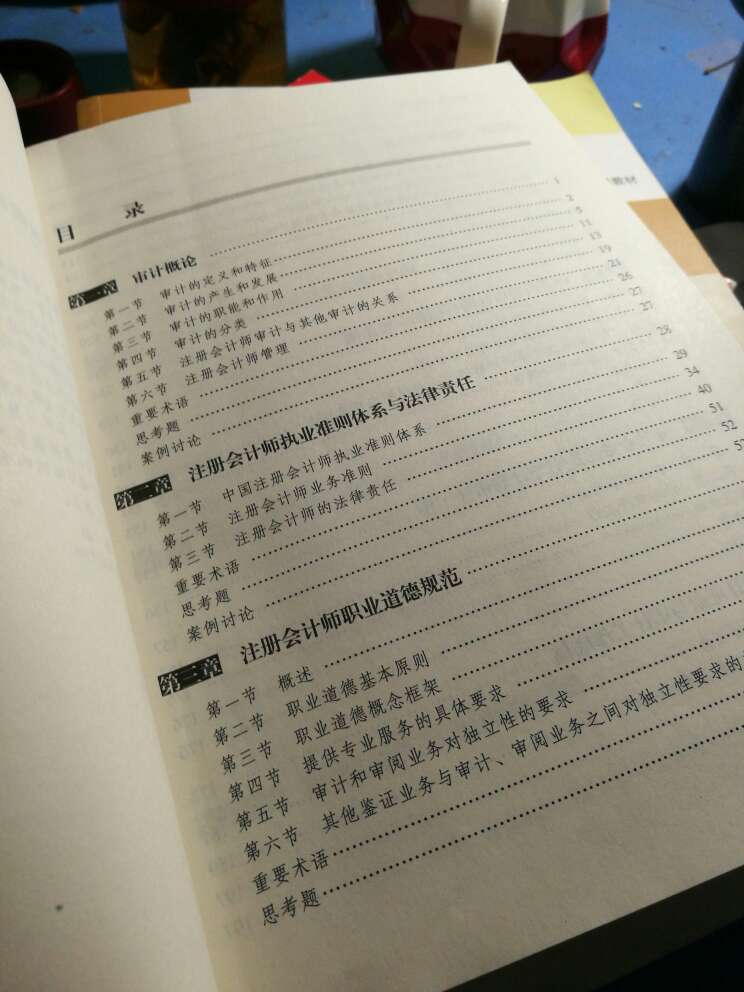 教材
目 录
第一章 审计概论 1
第一节 审计的定义和特征 2
第二节 审计的产生和发展 5
第三节 审计的职能和作用 11
第四节 审计的分类 13
第五节 注册会计师审计与其他审计的关系 19
第六节 注册会计师管理 21
重要术语 26
思考题 27
案例讨论 27
第二章 注册会计师执业准则体系与法律责任 28
第一节 中国注册会计师执业准则体系 29
第二节 注册会计师业务准则 34
第三节 注册会计师的法律责任 40
重要术语 51
思考题 52
案例讨论
第三章 注册会计师职业道德规范
第一节 概述
第二节 职业道德基本原则
第三节 职业道德概念框架
第四节 提供专业服务的具体要求
第五节 审计和审阅业务对独立性的要求
第六节 其他鉴证业务与审计、审阅业务之间对独立性要求的
重要术语
思考题